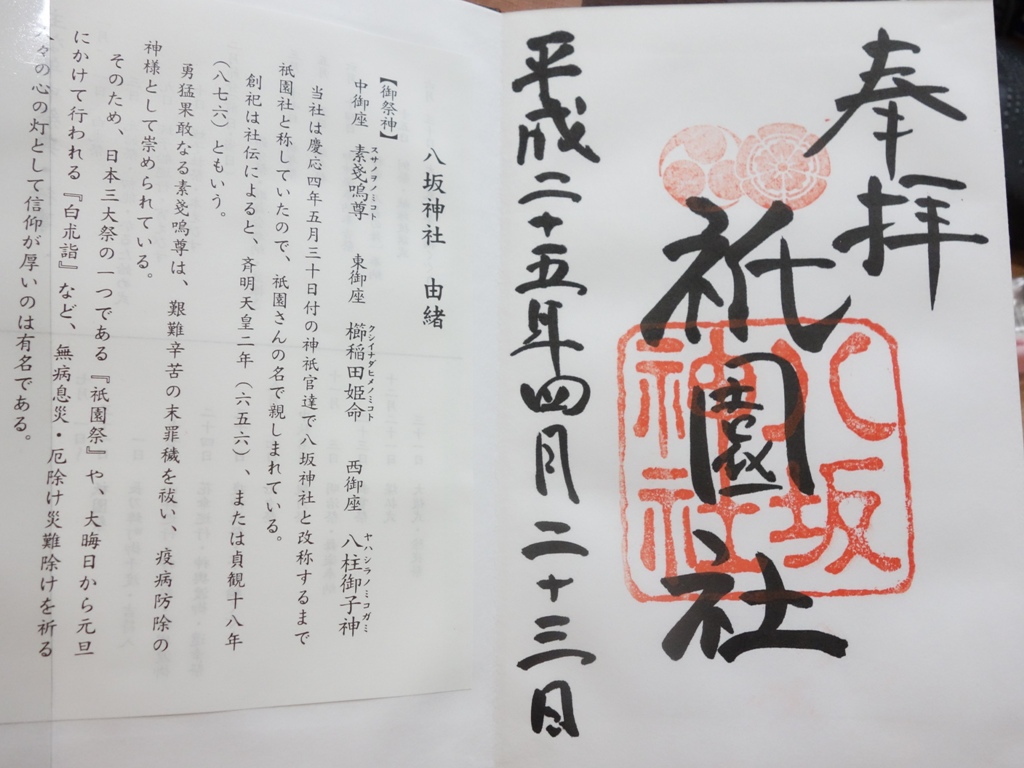 奉拝
祇園社
八坂
神社
平成二十五年四月二十三日
八坂神社 由緒
【御祭神】
中御座 素戔嗚尊 東御座 櫛稲田姫命 西御座 八柱御子神
スサノヲノミコト クシイナダヒメノミコト ヤハシラノミコガミ
当社は慶応四年五月三十日付の神祇官達で八坂神社と改称するまで
祇園社と称していたので、祇園さんの名で親しまれている。
創祀は社伝によると、斉明天皇二年(六五六)、または貞観十八年
(八七六)ともいう。
勇猛果敢なる素戔嗚尊は、艱難辛苦の末罪穢を祓い、疫病防除の
神様として崇められている。
そのため、日本三大祭の一つである『祇園祭』や、大晦日から元旦
にかけて行われる『白朮詣』など、無病息災・厄除け災難除けを祈る
々の心の灯として信仰が厚いのは有名である。